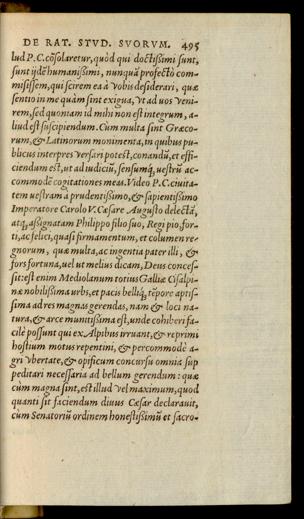 DE RAT. STVD. SVORVM. 495
lud P.C. cõsolaretur, quòd qui doctißimi sunt,
sunt ijdẽ humanißimi, nunquã profectò com-
misissem, qui scirem ea à vobis desiderari, quæ
sentio in me quàm sint exigua, vt ad uos veni-
rem, sed quoniam id mihi non est integrum, a-
liud est suscipiendum. Cum multa sint Græco-
rum, & Latinorum monimenta, in quibus pu-
blicus interpres versari potest, conandũ, et effi-
ciendum est, ut ad iudiciũ, sensumq́, uestrũ ac-
commodẽ cogitationes meas. Video P.C. ciuita-
tem uestram à prudentißimo, & sapientißimo
Imperatore Carolo V. Cæsare Augusto delectã,
atq́, aßignatam Philippo filio suo, Regi pio, for-
ti, ac felici, quasi firmamentum, et columen re-
gnorum, quæ multa, ac ingentia pater illi, &
fors fortuna, uel ut melius dicam, Deus conces-
sit: est enim Mediolanum totius Galliæ Cisalpi-
næ nobilißima urbs, et pacis belliq́, tẽpore aptis-
sima ad res magnas gerendas, nam & loci na-
tura, & arce munitißima est, unde cohiberi fa-
cilè possunt qui ex Alpibus irruant, & reprimi
hostium motus repentini, & percommodè a-
gri vbertate, & opificum concursu omnia sup
peditari necessaria ad bellum gerendum: quæ
cùm magna sint, est illud vel maximum, quod
quanti sit faciendum diuus Cæsar declarauit,
cùm Senatoriũ ordinem honestißimũ et sacro-